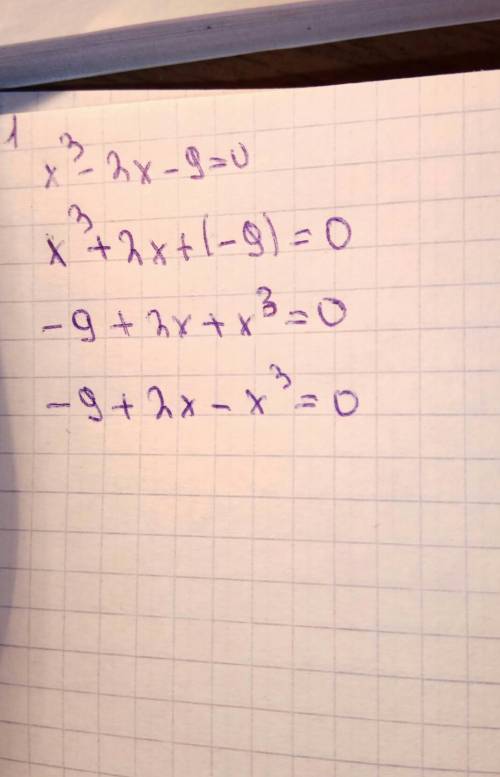 1
x³ - 2x - 9 = 0
x³ + 2x + (-9) = 0
-9 + 2x + x³ = 0
-9 + 2x - x³ = 0